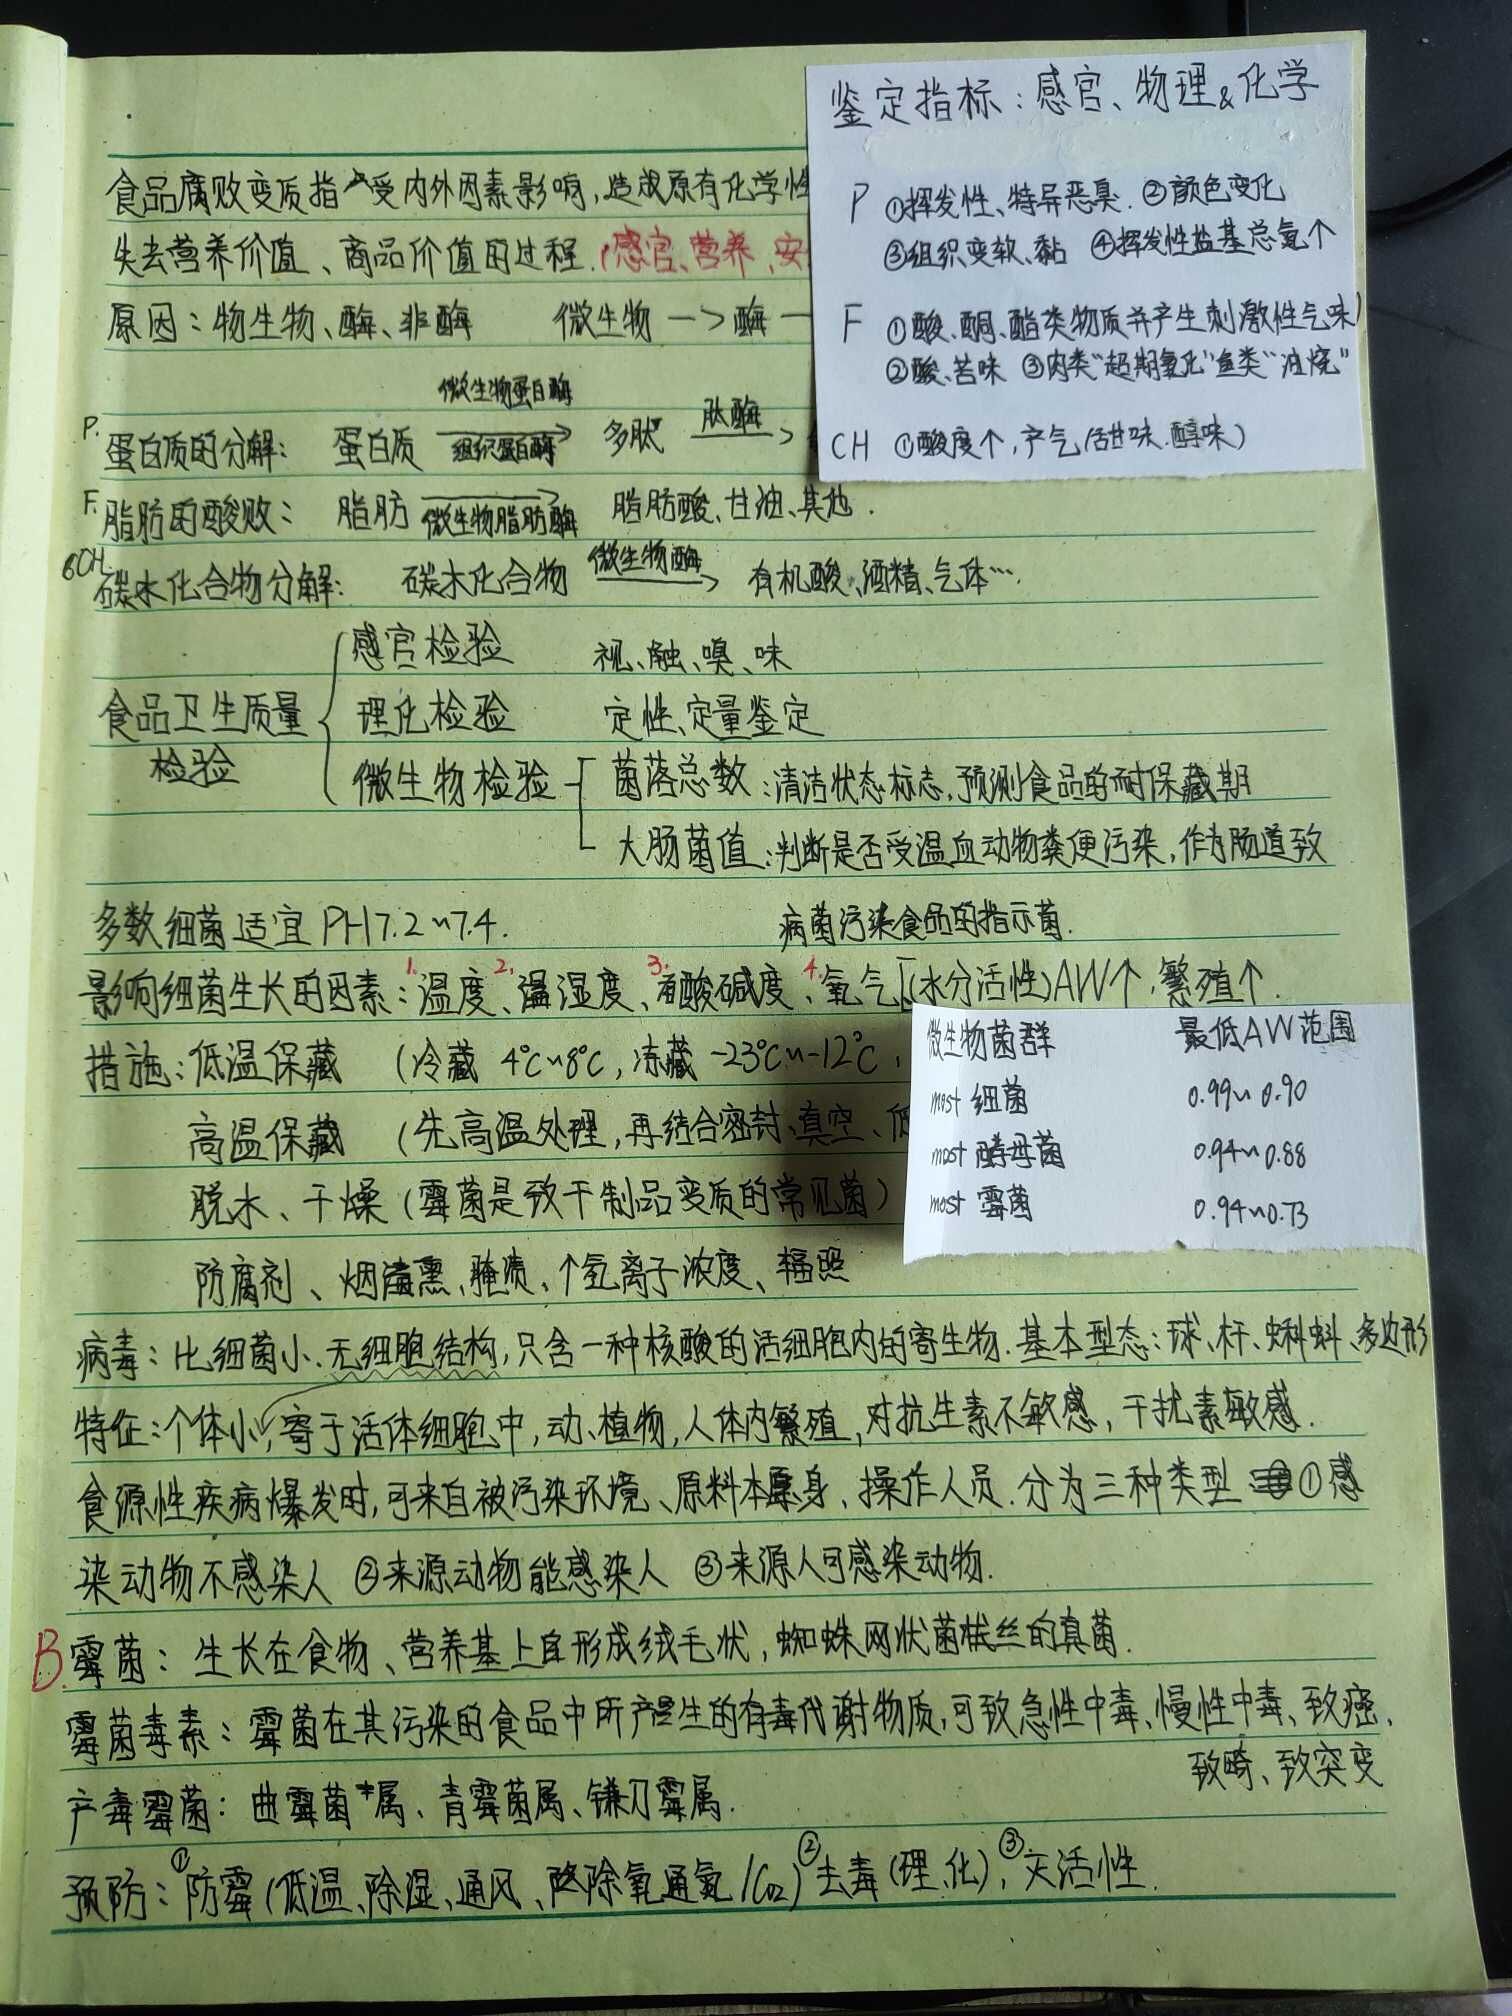 鉴定指标：感官、物理&化学
P ①挥发性、特异恶臭. ②颜色变化
③组织变软、黏 ④挥发性盐基总氮个
F ①酸、酮、酯类物质并产生刺激性气味)
②酸、苦味 ③肉类“超期氧化”鱼类“油烧”
CH ①酸度个, 产气(甜味.醇味)
食品腐败变质指 受内外因素影响, 造成原有化学性
失去营养价值、商品价值的过程.(感官、营养、安
原因：物生物、酶、非酶 微生物 —> 酶 —
P. 蛋白质的分解: 蛋白质 微生物蛋白酶 组织蛋白酶 → 多肽 肽酶 →
F. 脂肪的酸败: 脂肪 微生物脂肪酶 → 脂肪酸、甘油、其他.
CH. 碳水化合物分解: 碳水化合物 微生物酶 → 有机酸、酒精、气体…
感官检验 视、触、嗅、味
食品卫生质量检验 理化检验 定性、定量鉴定
微生物检验 菌落总数:清洁状态标志,预测食品的耐保藏期
大肠菌值:判断是否受温血动物粪便污染,作为肠道致
病菌污染食品的指示菌.
多数细菌适宜PH7.2~7.4.
影响细菌生长的因素: 1.温度、2.湿度、3.酸碱度、4.氧气 (水分活性)AW↑,繁殖↑.
微生物菌群 最低AW范围
most 细菌 0.99~0.90
most 酵母菌 0.94~0.88
most 霉菌 0.94~0.73
措施:低温保藏 (冷藏 4℃~8℃, 冻藏 -23℃~-12℃,
高温保藏 (先高温处理,再结合密封、真空、低
脱水、干燥(霉菌是致干制品变质的常见菌)
防腐剂、烟熏、腌渍、↑氢离子浓度、辐照
病毒:比细菌小.无细胞结构,只含一种核酸的活细胞内的寄生物.基本型态:球、杆、蝌蚪、多边形
特征:个体小,寄于活体细胞中,动、植物,人体内繁殖,对抗生素不敏感,干扰素敏感.
食源性疾病爆发时,可来自被污染环境、原料本身、操作人员.分为三种类型 ①感
染动物不感染人 ②来源动物能感染人 ③来源人可感染动物.
B.霉菌: 生长在食物、营养基上自形成绒毛状,蜘蛛网状菌丝的真菌.
霉菌毒素:霉菌在其污染的食品中所产生的有毒代谢物质,可致急性中毒、慢性中毒、致癌、
致畸、致突变
产毒霉菌:曲霉菌属、青霉菌属、镰刀霉属.
预防:①防霉(低温、除湿、通风、除氧通氮/CO₂)②去毒(理、化),③灭活性.